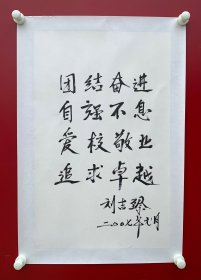 团结奋进
自强不息
爱校敬业
追求卓越
刘吉臻
二〇〇七年七月